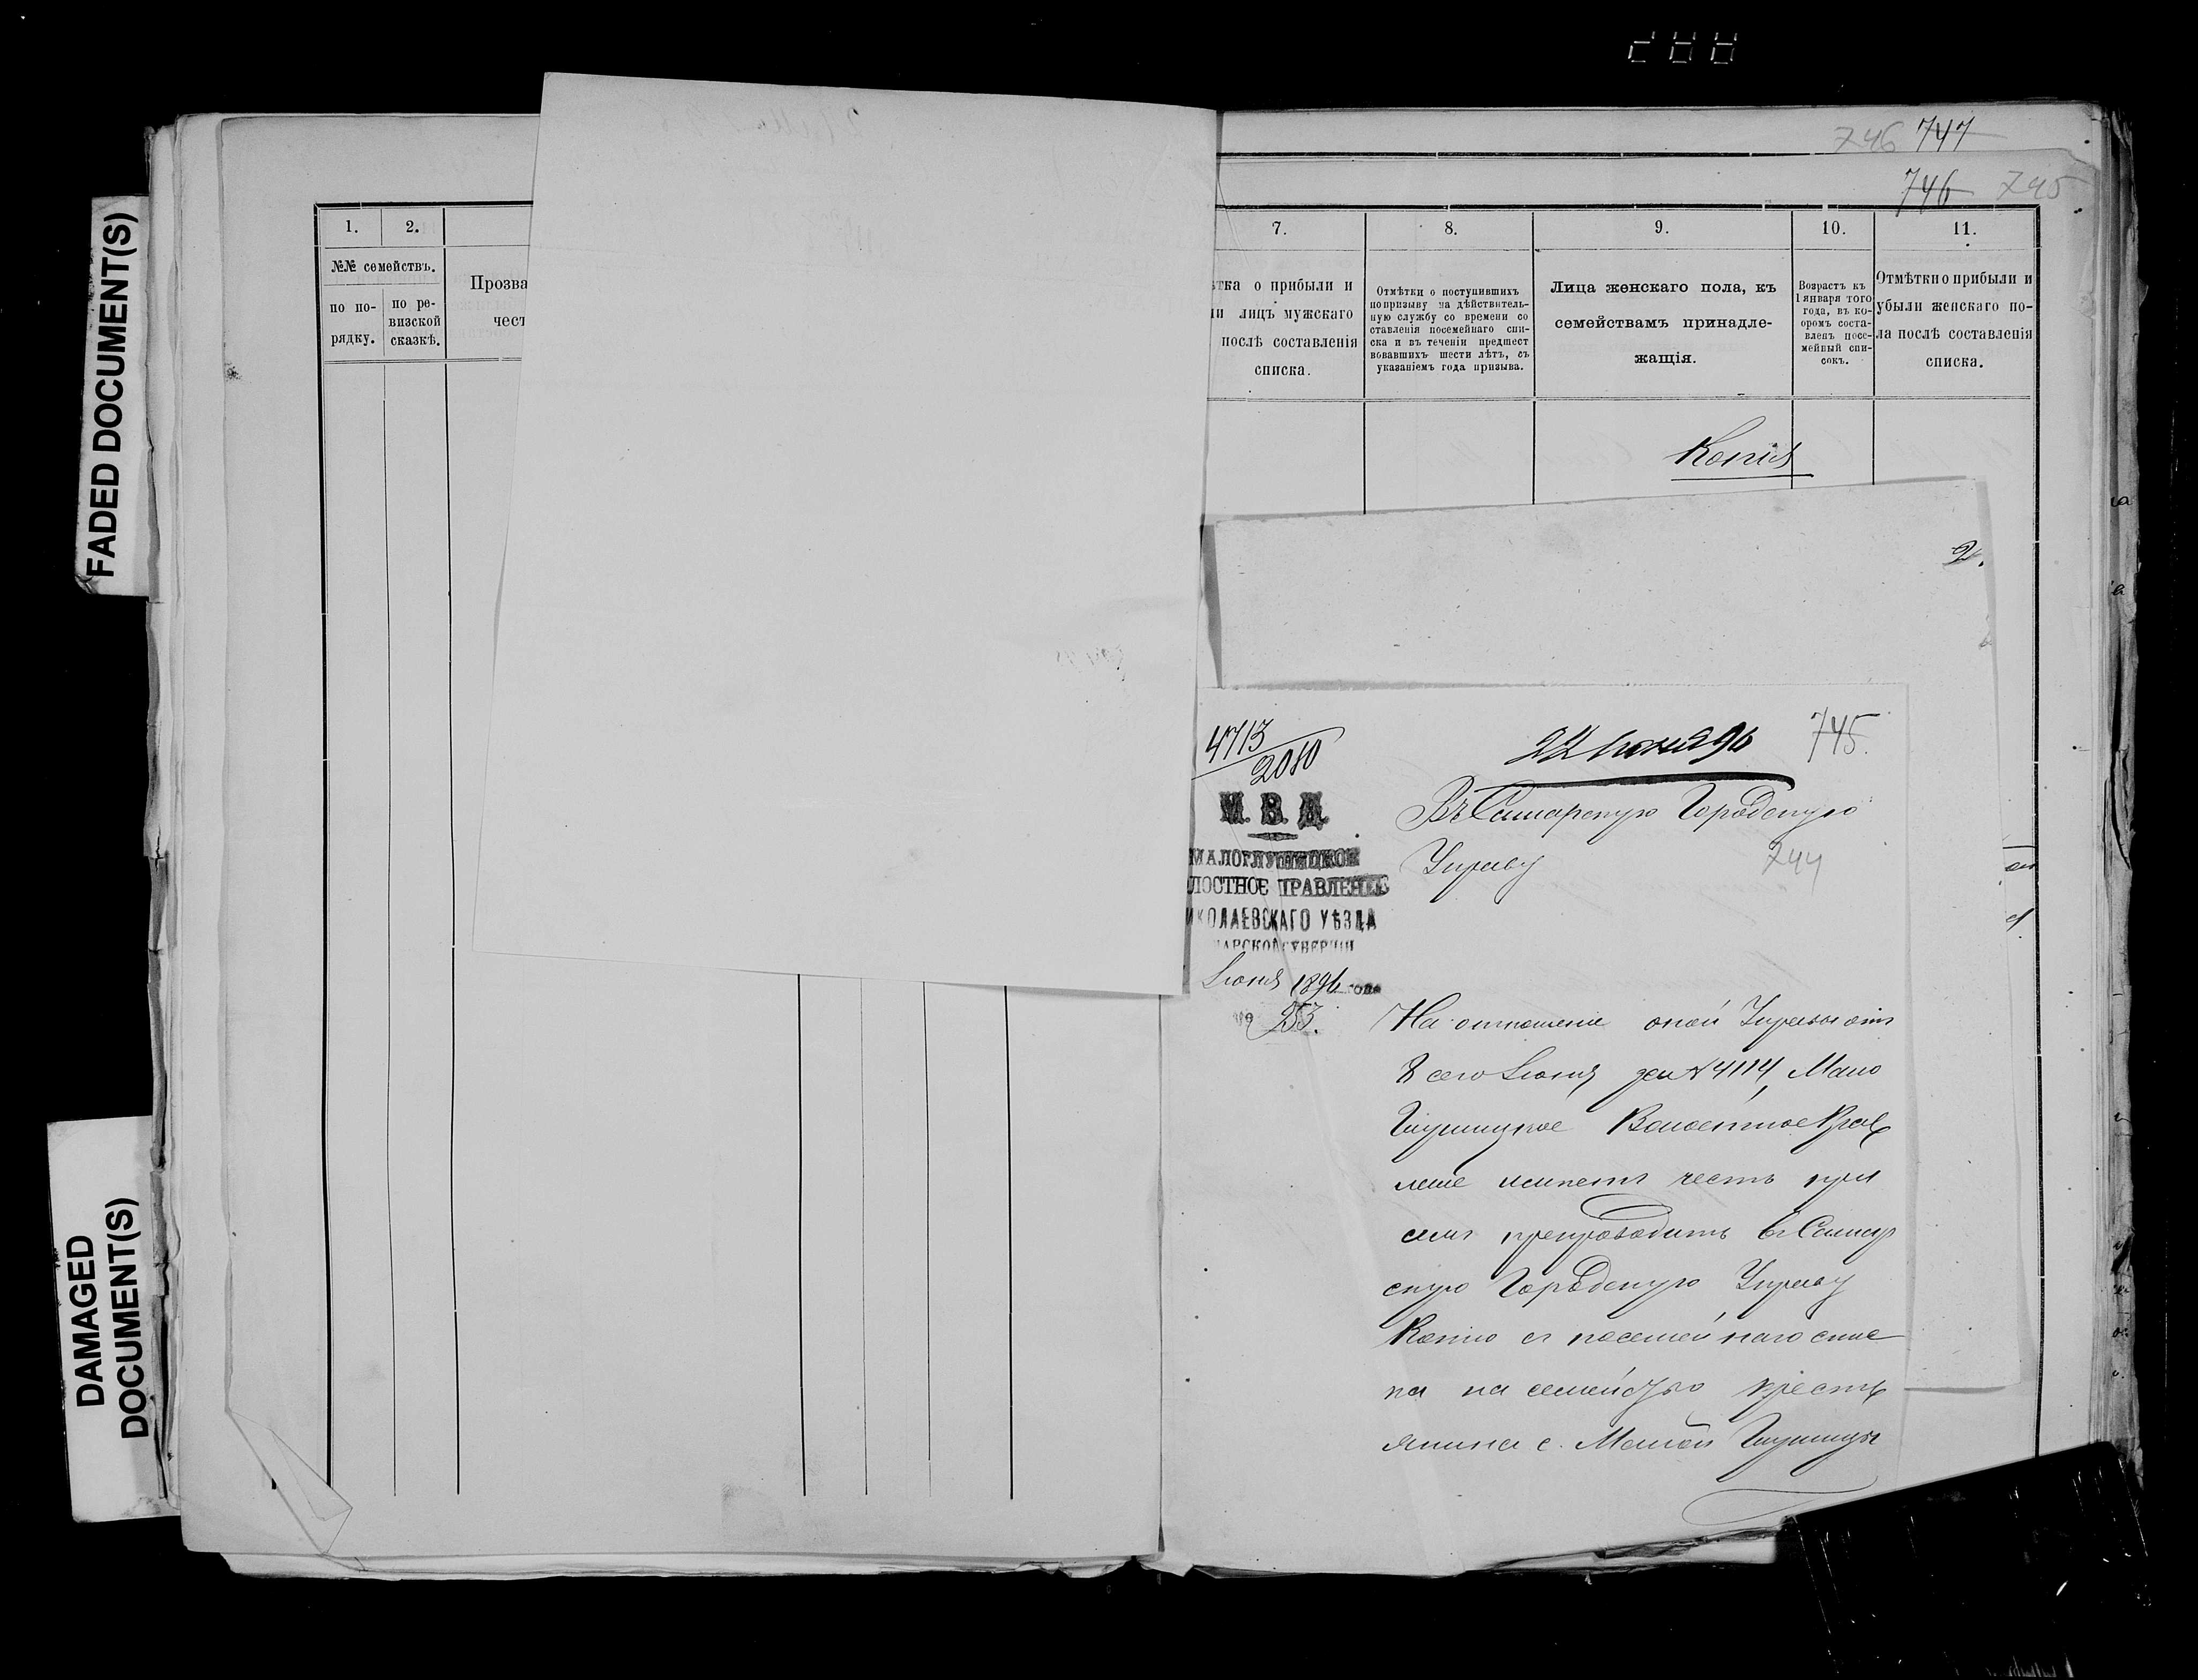 288
FADED DOCUMENT(S)
DAMAGED
DOCUMENT(S)
746 747
746 745
1. 2.
№№ семействъ.
по по-
рядку.
по ре-
визской
сказкѣ.
Прозва
чест
7. 8. 9. 10. 11.
тка о прибыли и
ли лицъ мужскаго
послѣ составленія
списка.
Отмѣтки о поступившихъ
по призыву на дѣйствитель-
ную службу со времени со
ставленія посемейнаго спи-
ска и въ теченіи предшест
вовавшихъ шести лѣтъ, съ
указаніемъ года призыва.
Лица женскаго пола, къ
семействамъ принадле-
жащія.
Возрастъ къ
1 января того
года, въ ко-
оромъ соста-
вленъ посе-
мейный спи-
сокъ.
Отмѣтки о прибыли и
убыли женскаго по-
ла послѣ составленія
списка.
Копія
2.
4713
2080
М. В. Д.
МАЛОГЛУШИЦКОЕ
ЛОСТНОЕ ПРАВЛЕНІЕ
ИКОЛАЕВСКАГО УѢЗДА
МАРСКОЙ ГУБЕРНІИ
Іюня 1896 года
№ 253.
22 Іюня 96
745.
Въ Самарскую Городскую
Управу
744
На отношеніе оной Управы отъ
8 сего Іюня за № 4114, Мало
Глушицкое Волостное Прав
леніе имѣетъ честь при
семъ препроводить въ Самар
скую Городскую Управу
Копію съ посемейнаго спис
ка на семейство кресть
янина с. Малой Глушицы